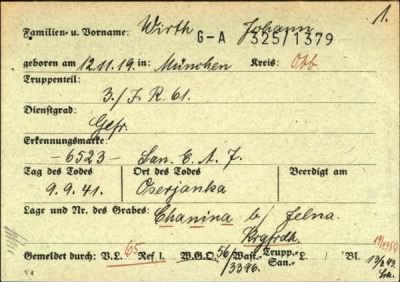 1.
Familien- u. Vorname: Wirth Johann
G-A 325/1379
geboren am 12.11.19. in: München Kreis: Obb.
Truppenteil:
3./J.R. 61.
Dienstgrad:
Gefr.
Erkennungsmarke:
-6523- San. E. A. 7.
Tag des Todes Ort des Todes Beerdigt am
9.9.41. Oserjanka
Lage und Nr. des Grabes: Chanina b/ Jelna.
Krgfrdh.
Gemeldet durch: V.L. 65 Ref I. W.G.O. 56/3396. Wast.- Trupp.- San.- L. / Bl. 13/2.43
V 4